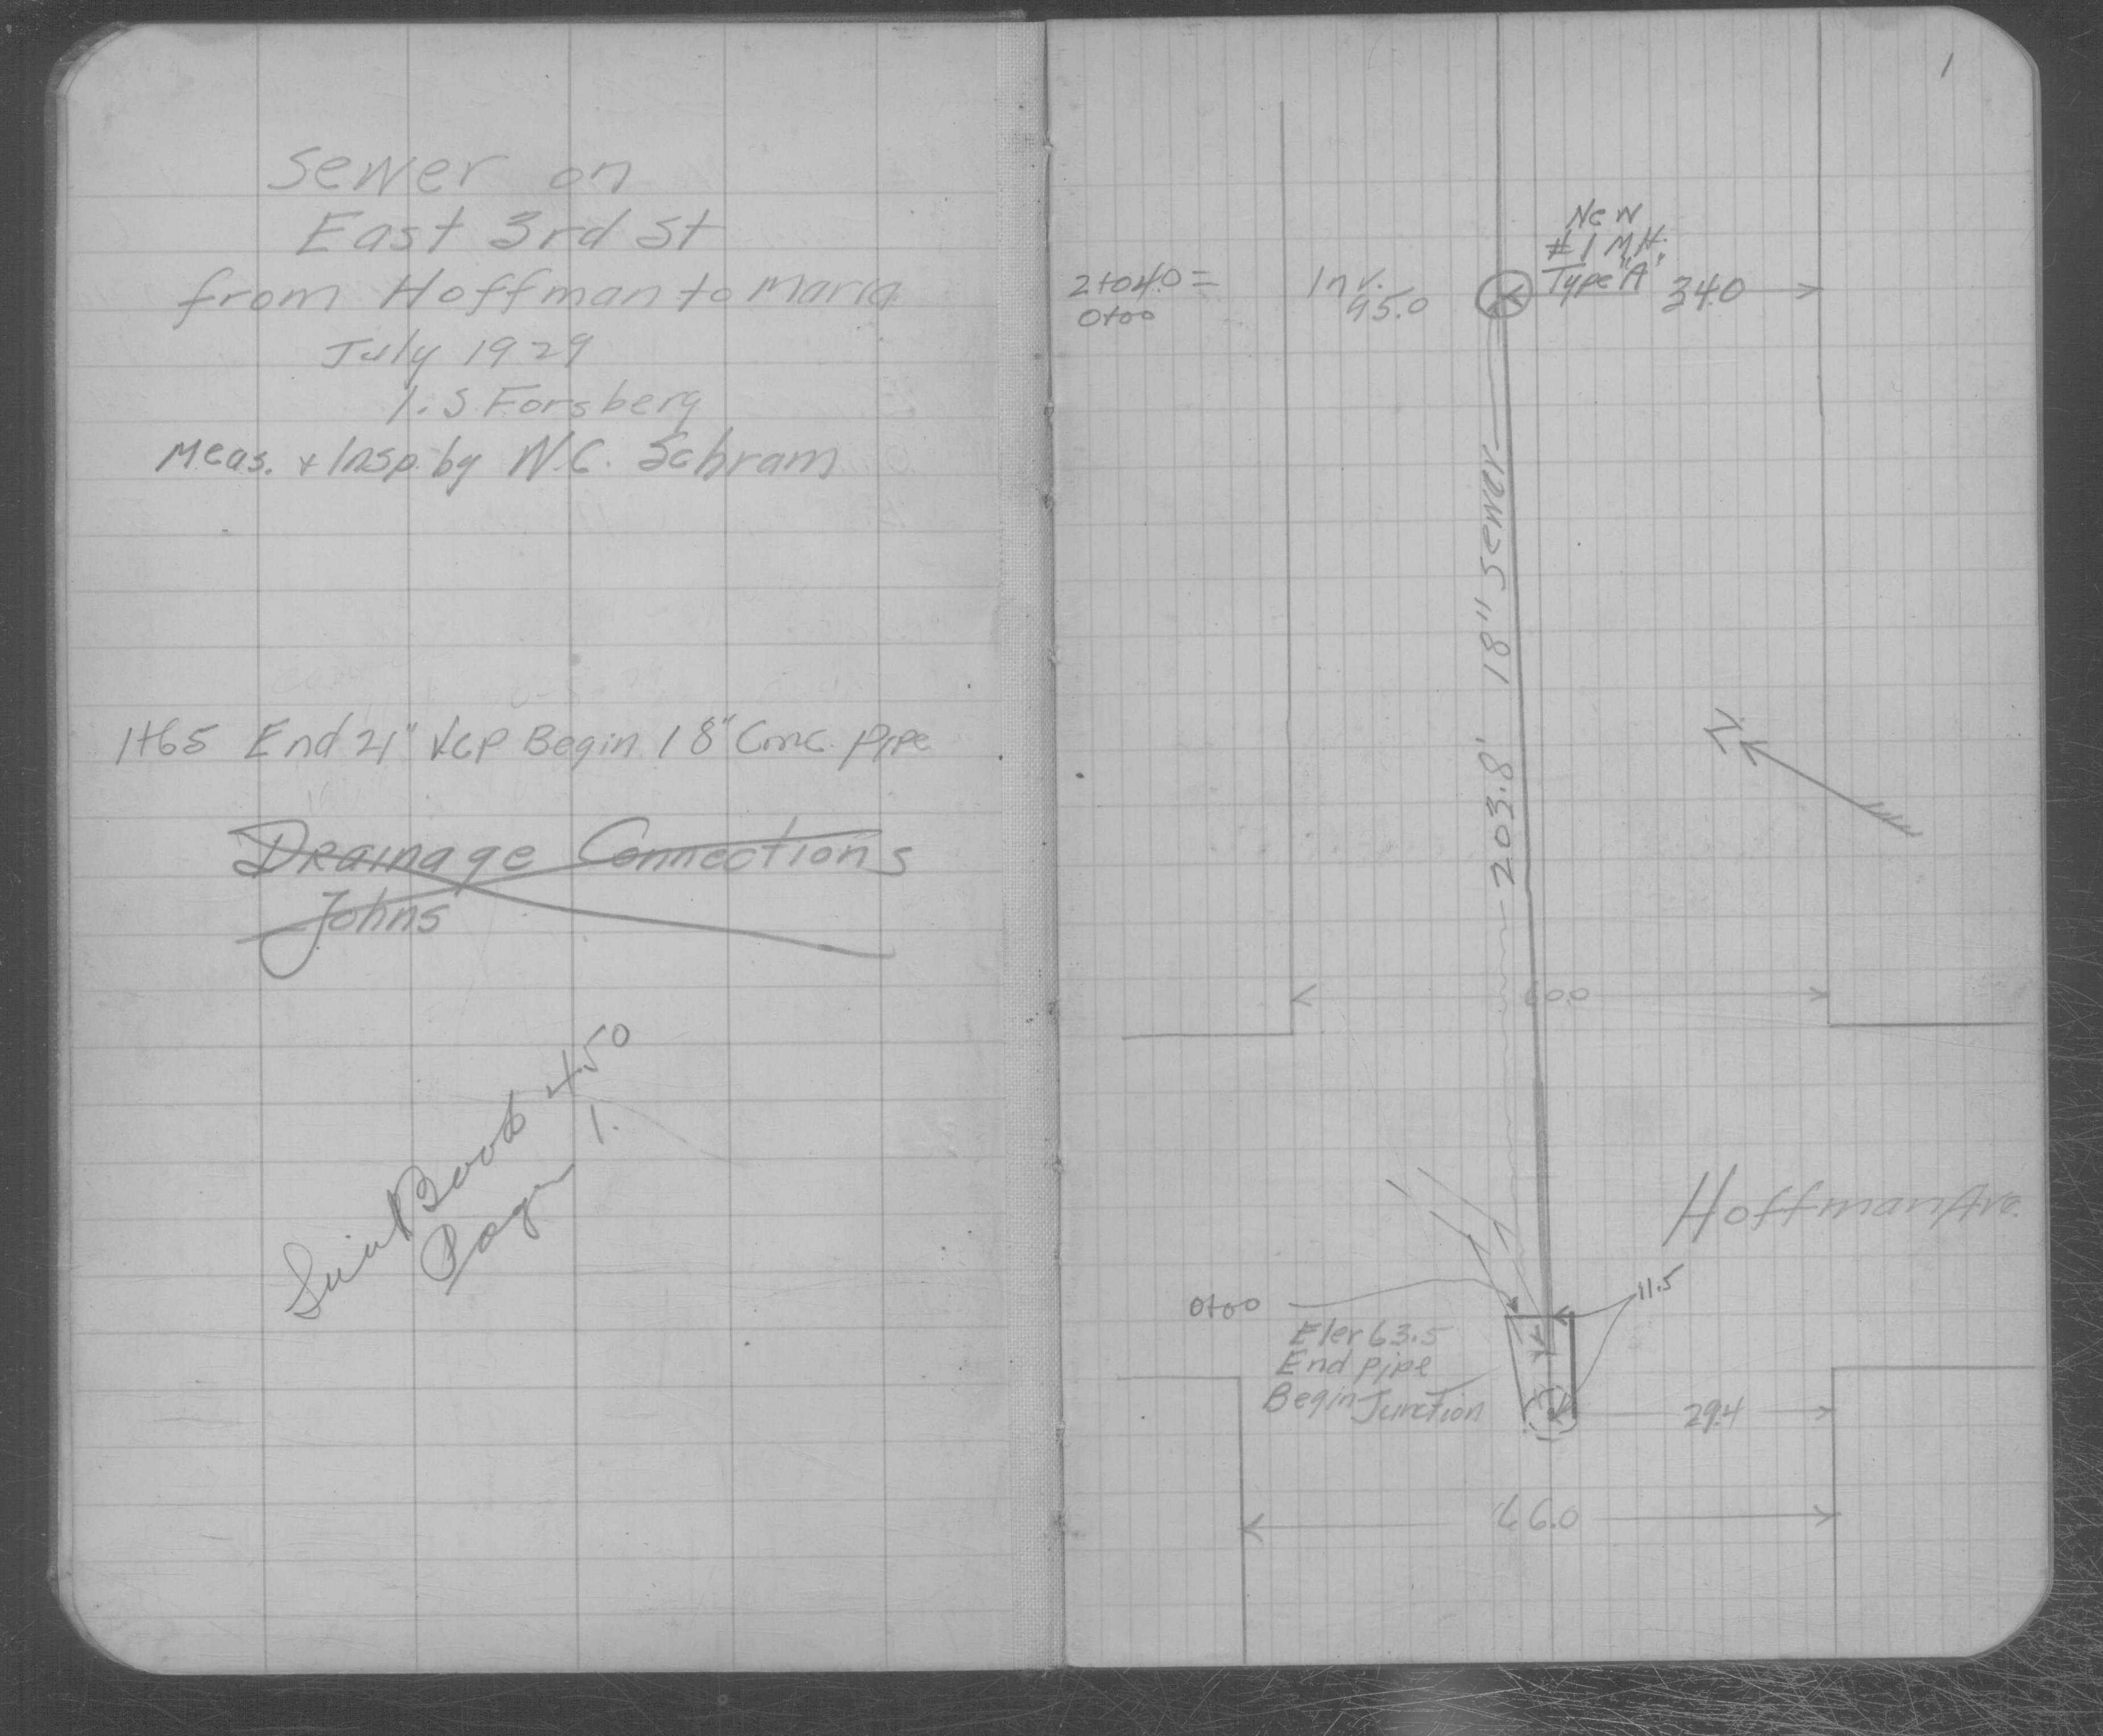 Sewer on
East 3rd St
from Hoffman to Maria
July 1929
I. S Forsberg
Meas. + Insp. by N.C. Schram
1+65 End 21" VCP Begin 18" Conc. Pipe
Drainage Connections
Johns
Book 450
Page 1.
1
New
#1 M.H.
Type "A"
2+04.0 =
0+00
Inv.
95.0
34.0
203.8' 18" Sewer
N
60.0
Hoffman Ave.
11.5
0+00
Elev 63.5
End pipe
Begin Junction
29.4
66.0